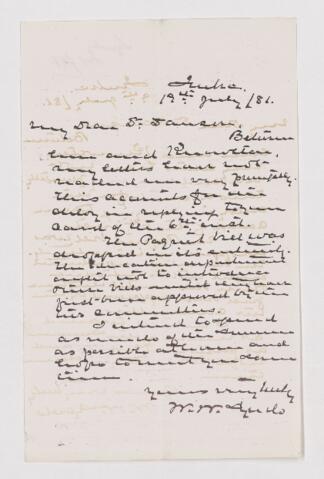 19th July /86.
My Dear Dr. Dawson,
Between
here and Knowlton,
my letters have not
reached me very promptly.
This accounts for the
delay in replying to your
card of the 6th inst.
The Bill was
dropped in its entirety.
The Education department
ought not to introduce
Bills until
first been approved by the
committees.
I intend to spend
as much of the Summer
as possible at home and
hope to meet you some
time.
Yours very truly
W. W. Lynch